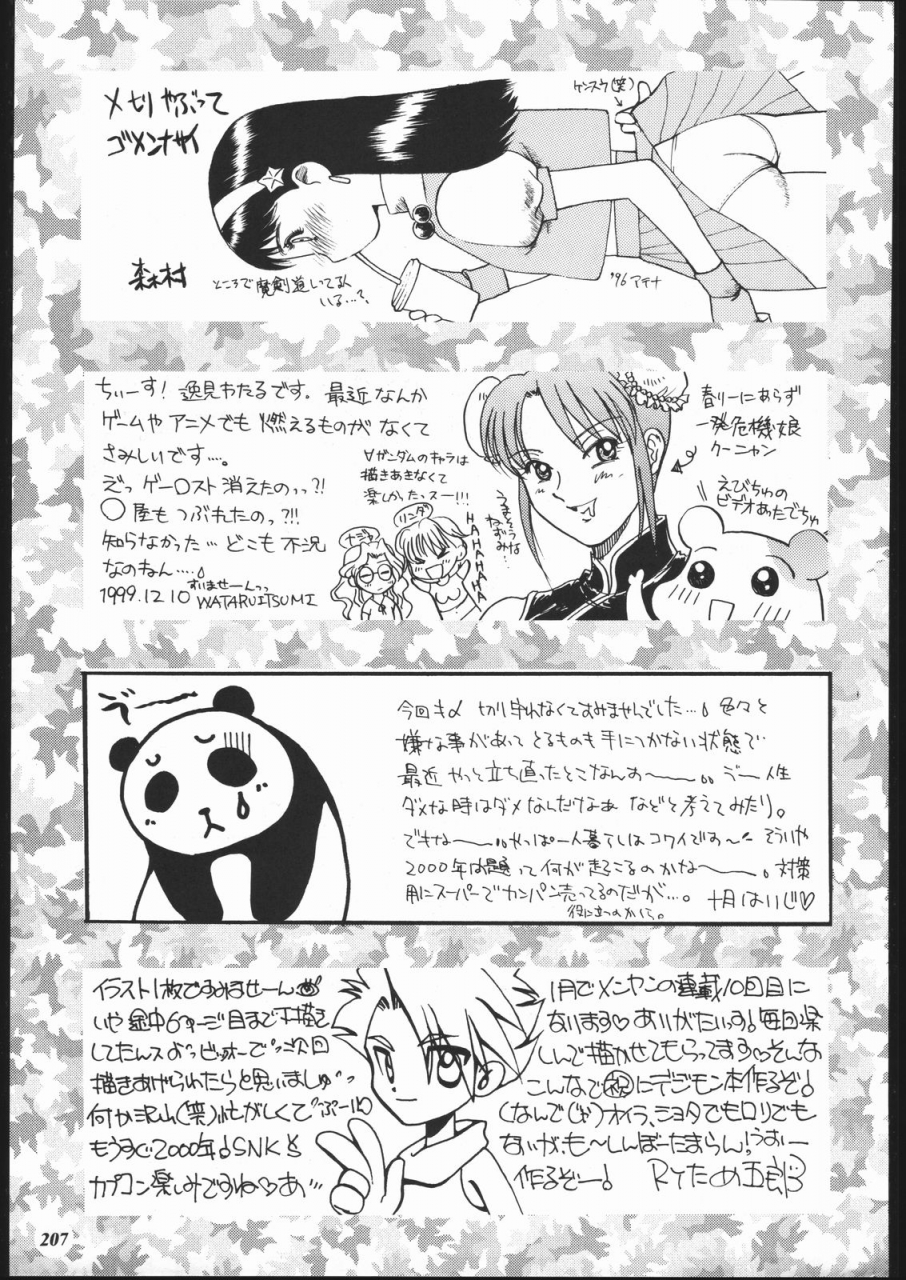 メ切りやぶって
ゴメンナサイ
森村
ところで魔剣道って
ケンスウ(笑)
'96アテナ
ちぃーす! 逸見わたるです。最近なんか
ゲームやアニメでも燃えるものがなくて
さみしいです…。
えっ ゲー○スト消えたのっっ?!
○屋もつぶれたのっ?!!
知らなかった… どこも不況
なのねん….
すいませーんっっ
1999.12.10 WATARU ITSUMI
∀ガンダムのキャラは
描きあきなくて
楽しかったッスー!!!
リンダ
HAHAHAHA
うまそうな
ねずみね
春リーにあらず
一発危機娘
クーニャン
えびちゅの
ビデオあたでちゅ
う゛ー
今回も〆切り守れなくてすみませんでした…。色々と
嫌な事があって とるものも手につかない状態で
最近やっと立ち直ったとこなんすー。う゛ー人生
ダメな時はダメなんだなぁ などと考えてみたり。
できなー。やっぱ一人暮らしはコワイですー そういや
2000年問題って何が起こるのかなー。対策
用にスーパーでカンパン売ってるのだが…。十月はいじ♡
役に立つのかしら。
イラスト1枚ですみませーん
いや 途中6ページ目まで下描き
してたんスよっ 次回
描きあげられたらと思いましゅ
何か沢山(笑)忙がしくて
もうすぐ2000年!SNK&
カプコン楽しみですね♡あ…
1月でメンヤンの連載10回目に
なります♡ありがたいっす!毎回楽
しんで描かせてもらってます♡そんな
こんなで㊗にデジモン本作るぞ!
(なんでじゃ)オイラ、ショタでもロリでも
ないが、も〜しんぼーたまらん!うおー
作るぞー! RYため五郎
207